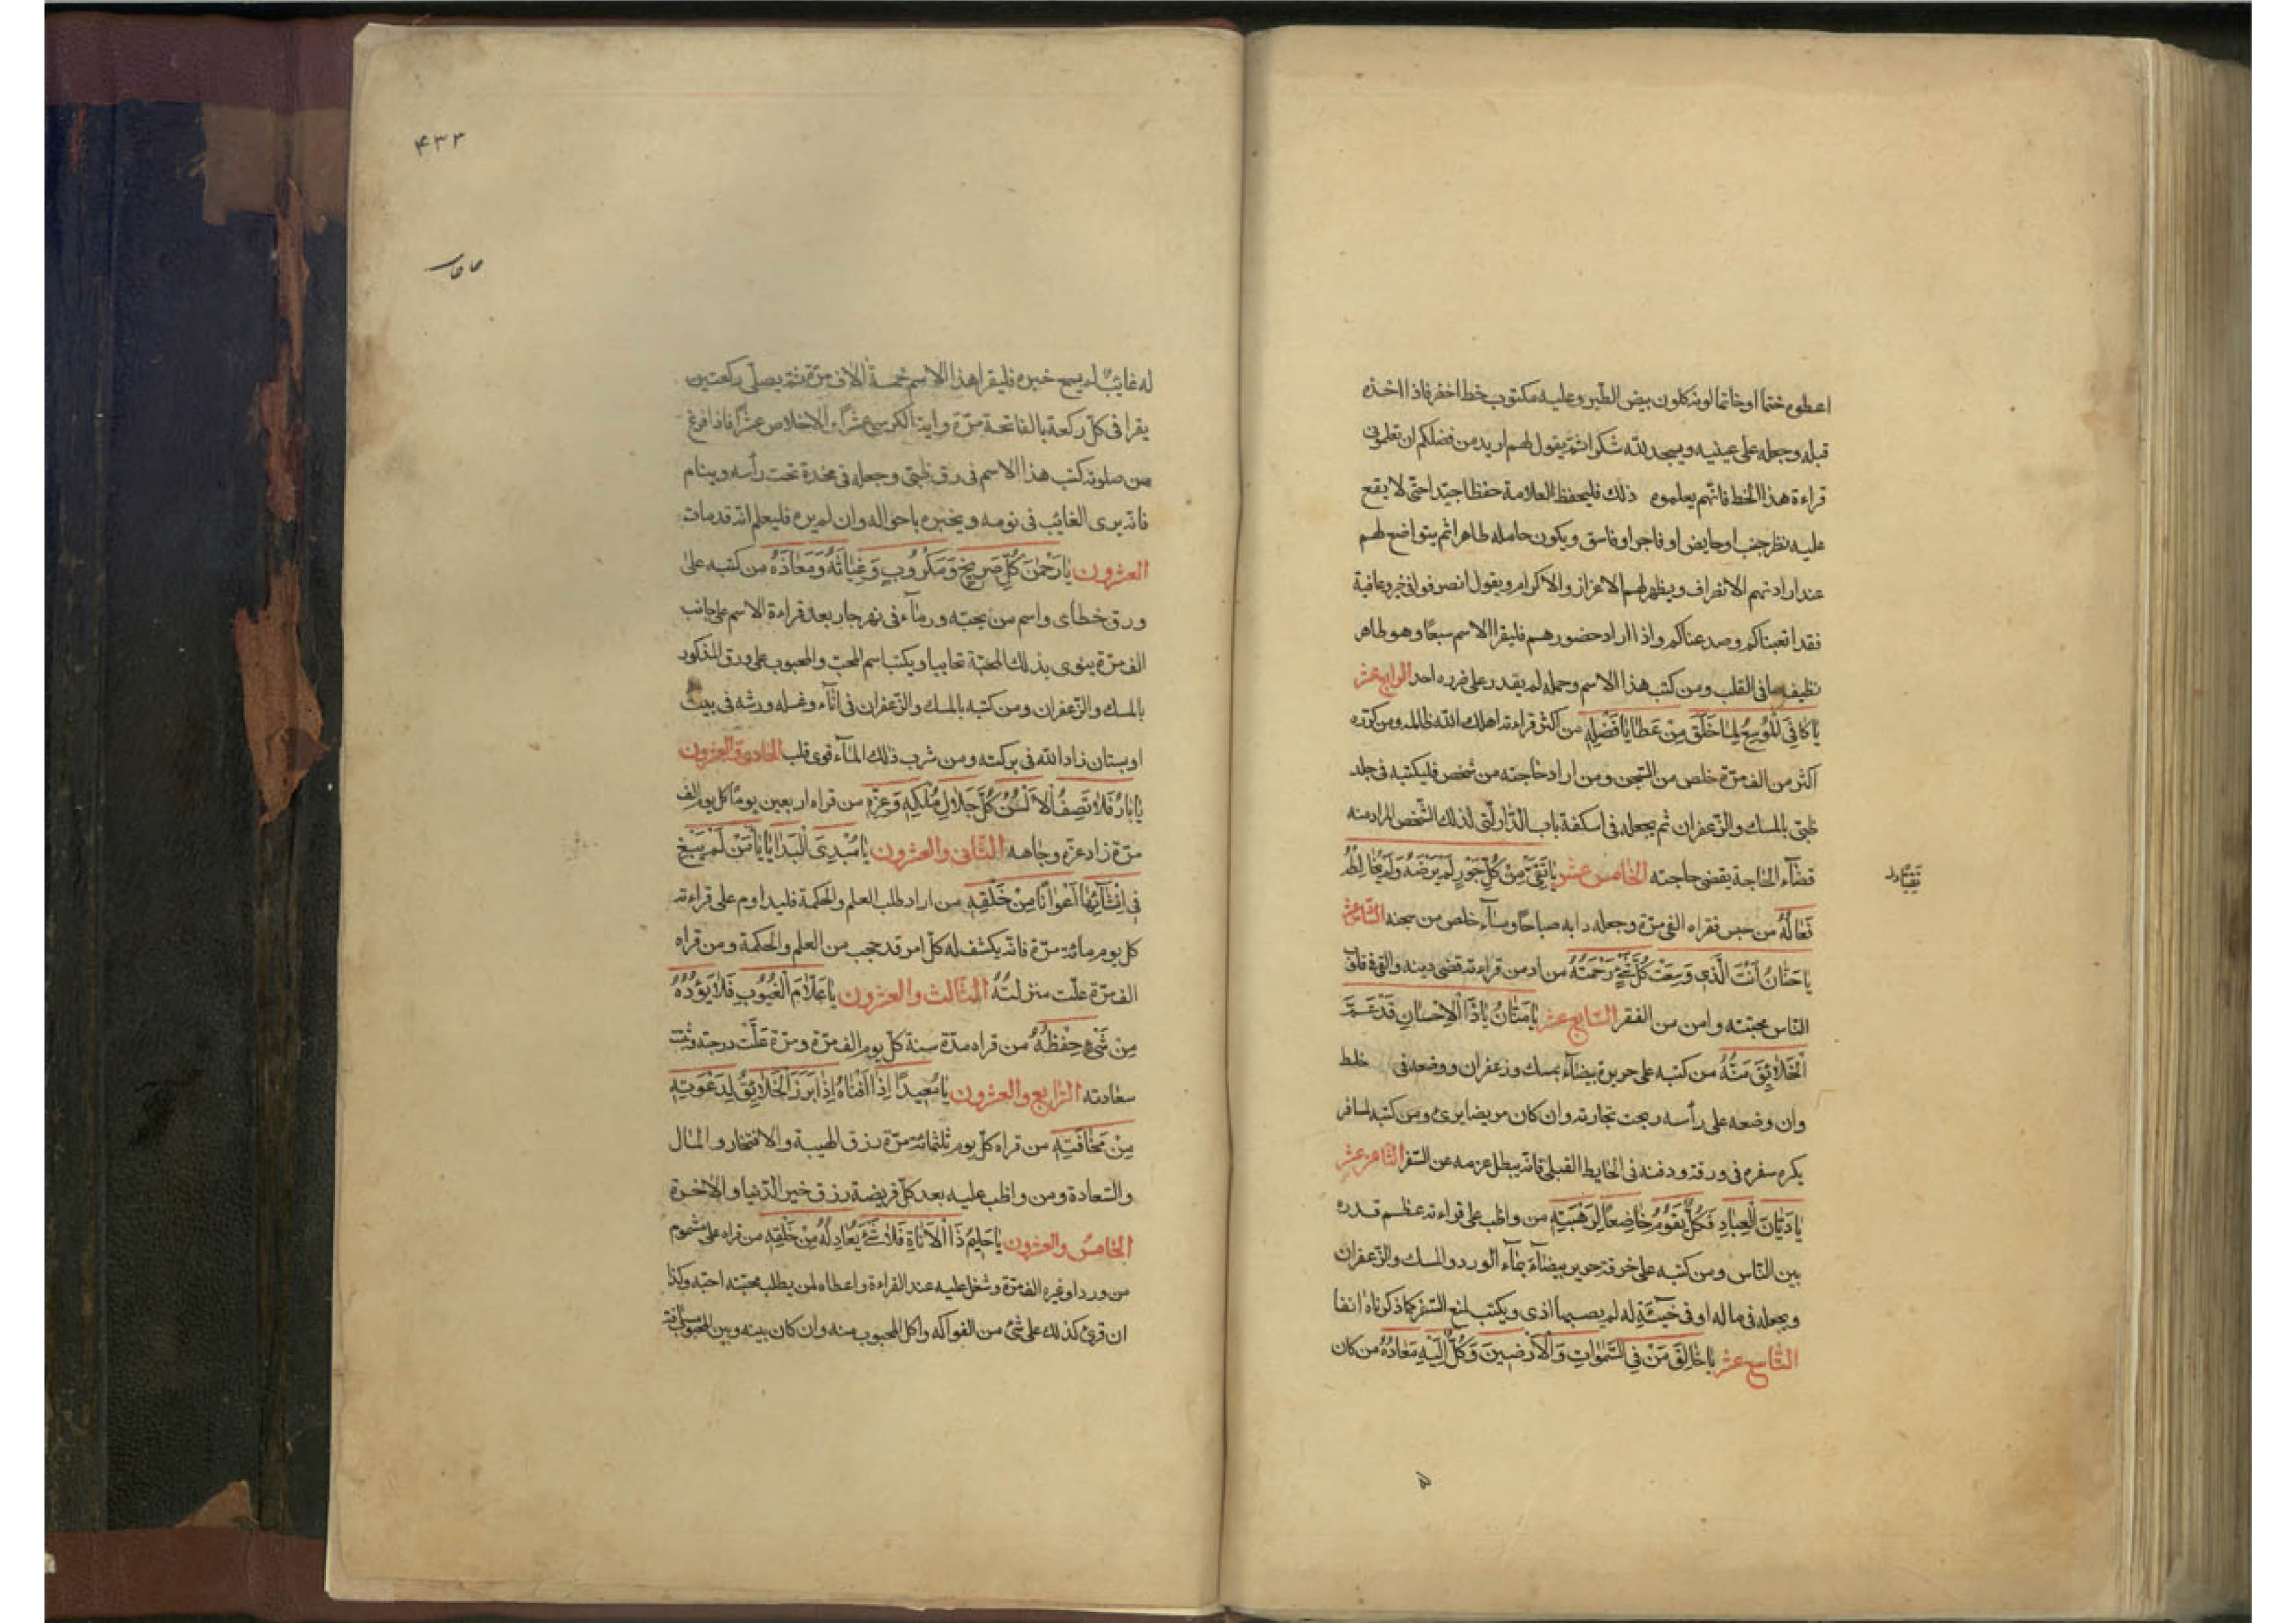 اعطوه ختما او خاتما لونه كلون بيض الطير وعليه مكتوب خط اخضر فاذا اخذه
قبله وجعله على عينيه ويسجد لله شكرا ثم يقول لهم اريد من فضلكم ان تعلموني
قراءة هذا الخط فانهم يعلموه ذلك فليحفظ العلامة حفظا جيدا حتى لا يقع
عليه نظر جنب او حايض او فاجر او فاسق ويكون حامله طاهرا ثم يتواضع لهم
عند ارادتهم الانصراف ويظهر لهم الاعزاز والاكرام ويقول انصرفوا في خير وعافية
فقد اتعبناكم وصدعناكم واذا اراد حضورهم فليقرا الاسم سبعا وهو طاهر
نظيف صافى القلب ومن كتب هذا الاسم وحمله لم يقدر على ضرره احد الرابع عشر
يَا كَافِيَ المُوسِعُ لِمَا خَلَقَ مِنْ عَطَايَا فَضْلِهِ من اكثر قراءته اهلك الله ظالمه ومن كرره
اكثر من الف مرّة خلص من السّجن ومن اراد حاجته من شخص فليكتبه فى جلد
ظبى بالمسك والزعفران ثم يجعله فى اسكفة باب الدّار التى لذلك الشّخص المراد منه
قضاء الحاجة يقضى حاجته الخامس عشر يَا نَقِيُّ مِنْ كُلِّ جَوْرٍ لَمْ يَرْضَهُ وَلَمْ يُخَالِطْهُ
فَعَالُهُ من حبس فقراه الفى مرّة وجعله دابه صباحًا ومساءً خلص من سجنه السّادس عشر
يَا حَنَّانُ اَنْتَ الَّذِي وَسِعَتْ كُلَّ شَيْءٍ رَحْمَتُهُ من ادمن قراءته قضى دينه والقى فى قلوب
النّاس محبتته وامن من الفقر السّابع عشر يَا مَنَّانُ يَا ذَا الْاِحْسَانِ قَدْ عَمَّ
الْخَلَائِقَ مَنُّهُ من كتبه على حريرة بيضاء بمسك وزعفران ووضعه فى خلط
وان وضعه على رأسه ربحت تجارته وان كان مريضا يرىء ومن كتبه لمسافر
يكره سفره فى ورقة ودفنه فى الحايط القبلى فانّه يبطل عزمه عن السّفر الثامن عشر
يَا دَيَّانَ الْعِبَادِ فَكُلٌّ يَقُومُ خَاضِعًا لِرَهْبَتِهِ من واظب على قراءته عظم قدره
بين النّاس ومن كتبه على خرقة حرير بيضاء بماء الورد والمسك والزعفران
ويجعله فى ماله او فى خبيئة له لم يصبها اذى ويكتب لمنع السّفر كما ذكرناه انفا
التّاسع عشر يَا خَالِقَ مَنْ فِي السَّمٰوَاتِ وَالْاَرَضِينَ وَكُلٌّ اِلَيْهِ مَعَادُهُ من كان
۴۳۳
له غائبًا لم يسمع خبره فليقرا هذا الاسم خمسة الاف مرّة ثمّ يصلّى ركعتين
يقرا فى كلّ ركعة بالفاتحة مرّة واية الكرسى عشرًا والاخلاص عشرًا فاذا فرغ
من صلوته كتب هذا الاسم فى رق ظبى وجعله فى مخدة تحت رأسه وينام
فانّه يرى الغائب فى نومه ويخبره باحواله وان لم يره فليعلم انّه قد مات
العشرون يَا رَحْمٰنَ كُلِّ صَرِيخٍ وَمَكْرُوبٍ وَغِيَاثَهُ وَمَعَاذَهُ من كتبه على
ورق خطاى واسم من يحبّه ورماه فى نهر جار بعد قراءة الاسم على جانب
الف مرّة ينوى بذلك المحبّة تحاببا ويكتب اسم المحبّ والمحبوب على ورق المذكور
بالمسك والزعفران ومن كتبه بالمسك والزعفران فى اناء وغسله ورشه فى بيت
او بستان زاد الله فى بركته ومن شرب ذلك الماء قوى قلب الحادى والعشرون
يَا بَارُّ فَلَا تَصِفُ الْاَلْسُنُ كُلَّ جَلَالِ مُلْكِهِ وَعِزِّهِ من قراه اربعين يومًا كل يوم الف
مرّة زاد عزّه وجاهه الثّانى والعشرون يَا مُبْدِئَ الْبَدَايَا يَا مَنْ لَمْ يَبْغِ
فِي اِنْشَائِهَا اَعْوَانًا مِنْ خَلْقِهِ من اراد طلب العلم والحكمة فليداوم على قراءته
كل يوم مائة مرّة فانّه يكشف له كلّ امر قد حجب من العلم والحكمة ومن قراه
الف مرّة علّت منزلتُهُ الثّالث والعشرون يَا عَلَّامَ الْغُيُوبِ فَلَا يَؤُدُهُ
مِنْ شَيْءٍ حِفْظُهُ من قراه مدّة سنة كلّ يوم الف مرّة ومرّة عَلَتْ درجته وتمّت
سعادته الرّابع والعشرون يَا مُعِيدًا اِذَا اَفْنَاهُ اِذَا بَرَزَ الْخَلَائِقُ لِدَعْوَتِهِ
مِنْ مَخَافَتِهِ من قراه كلّ يوم ثلثمائة مرّة رزق الهيبة والافتخار والمال
والسّعادة ومن واظب عليه بعد كلّ فريضة رزق خير الدّنيا والاخرة
الخامس والعشرون يَا حَلِيمُ ذَا الْاَنَاةِ فَلَا شَيْءَ يُعَادِلُهُ مِنْ خَلْقِهِ من قراه على مشموم
من ورد او غيره الف مرّة وشخل عليه عند القراءة واعطاه لمن يطلب محبّته احبّه وكذا
ان قرئ كذلك على شئ من الفواكه واكل المحبوب منه وان كان بينه وبين المحبوب مسافة